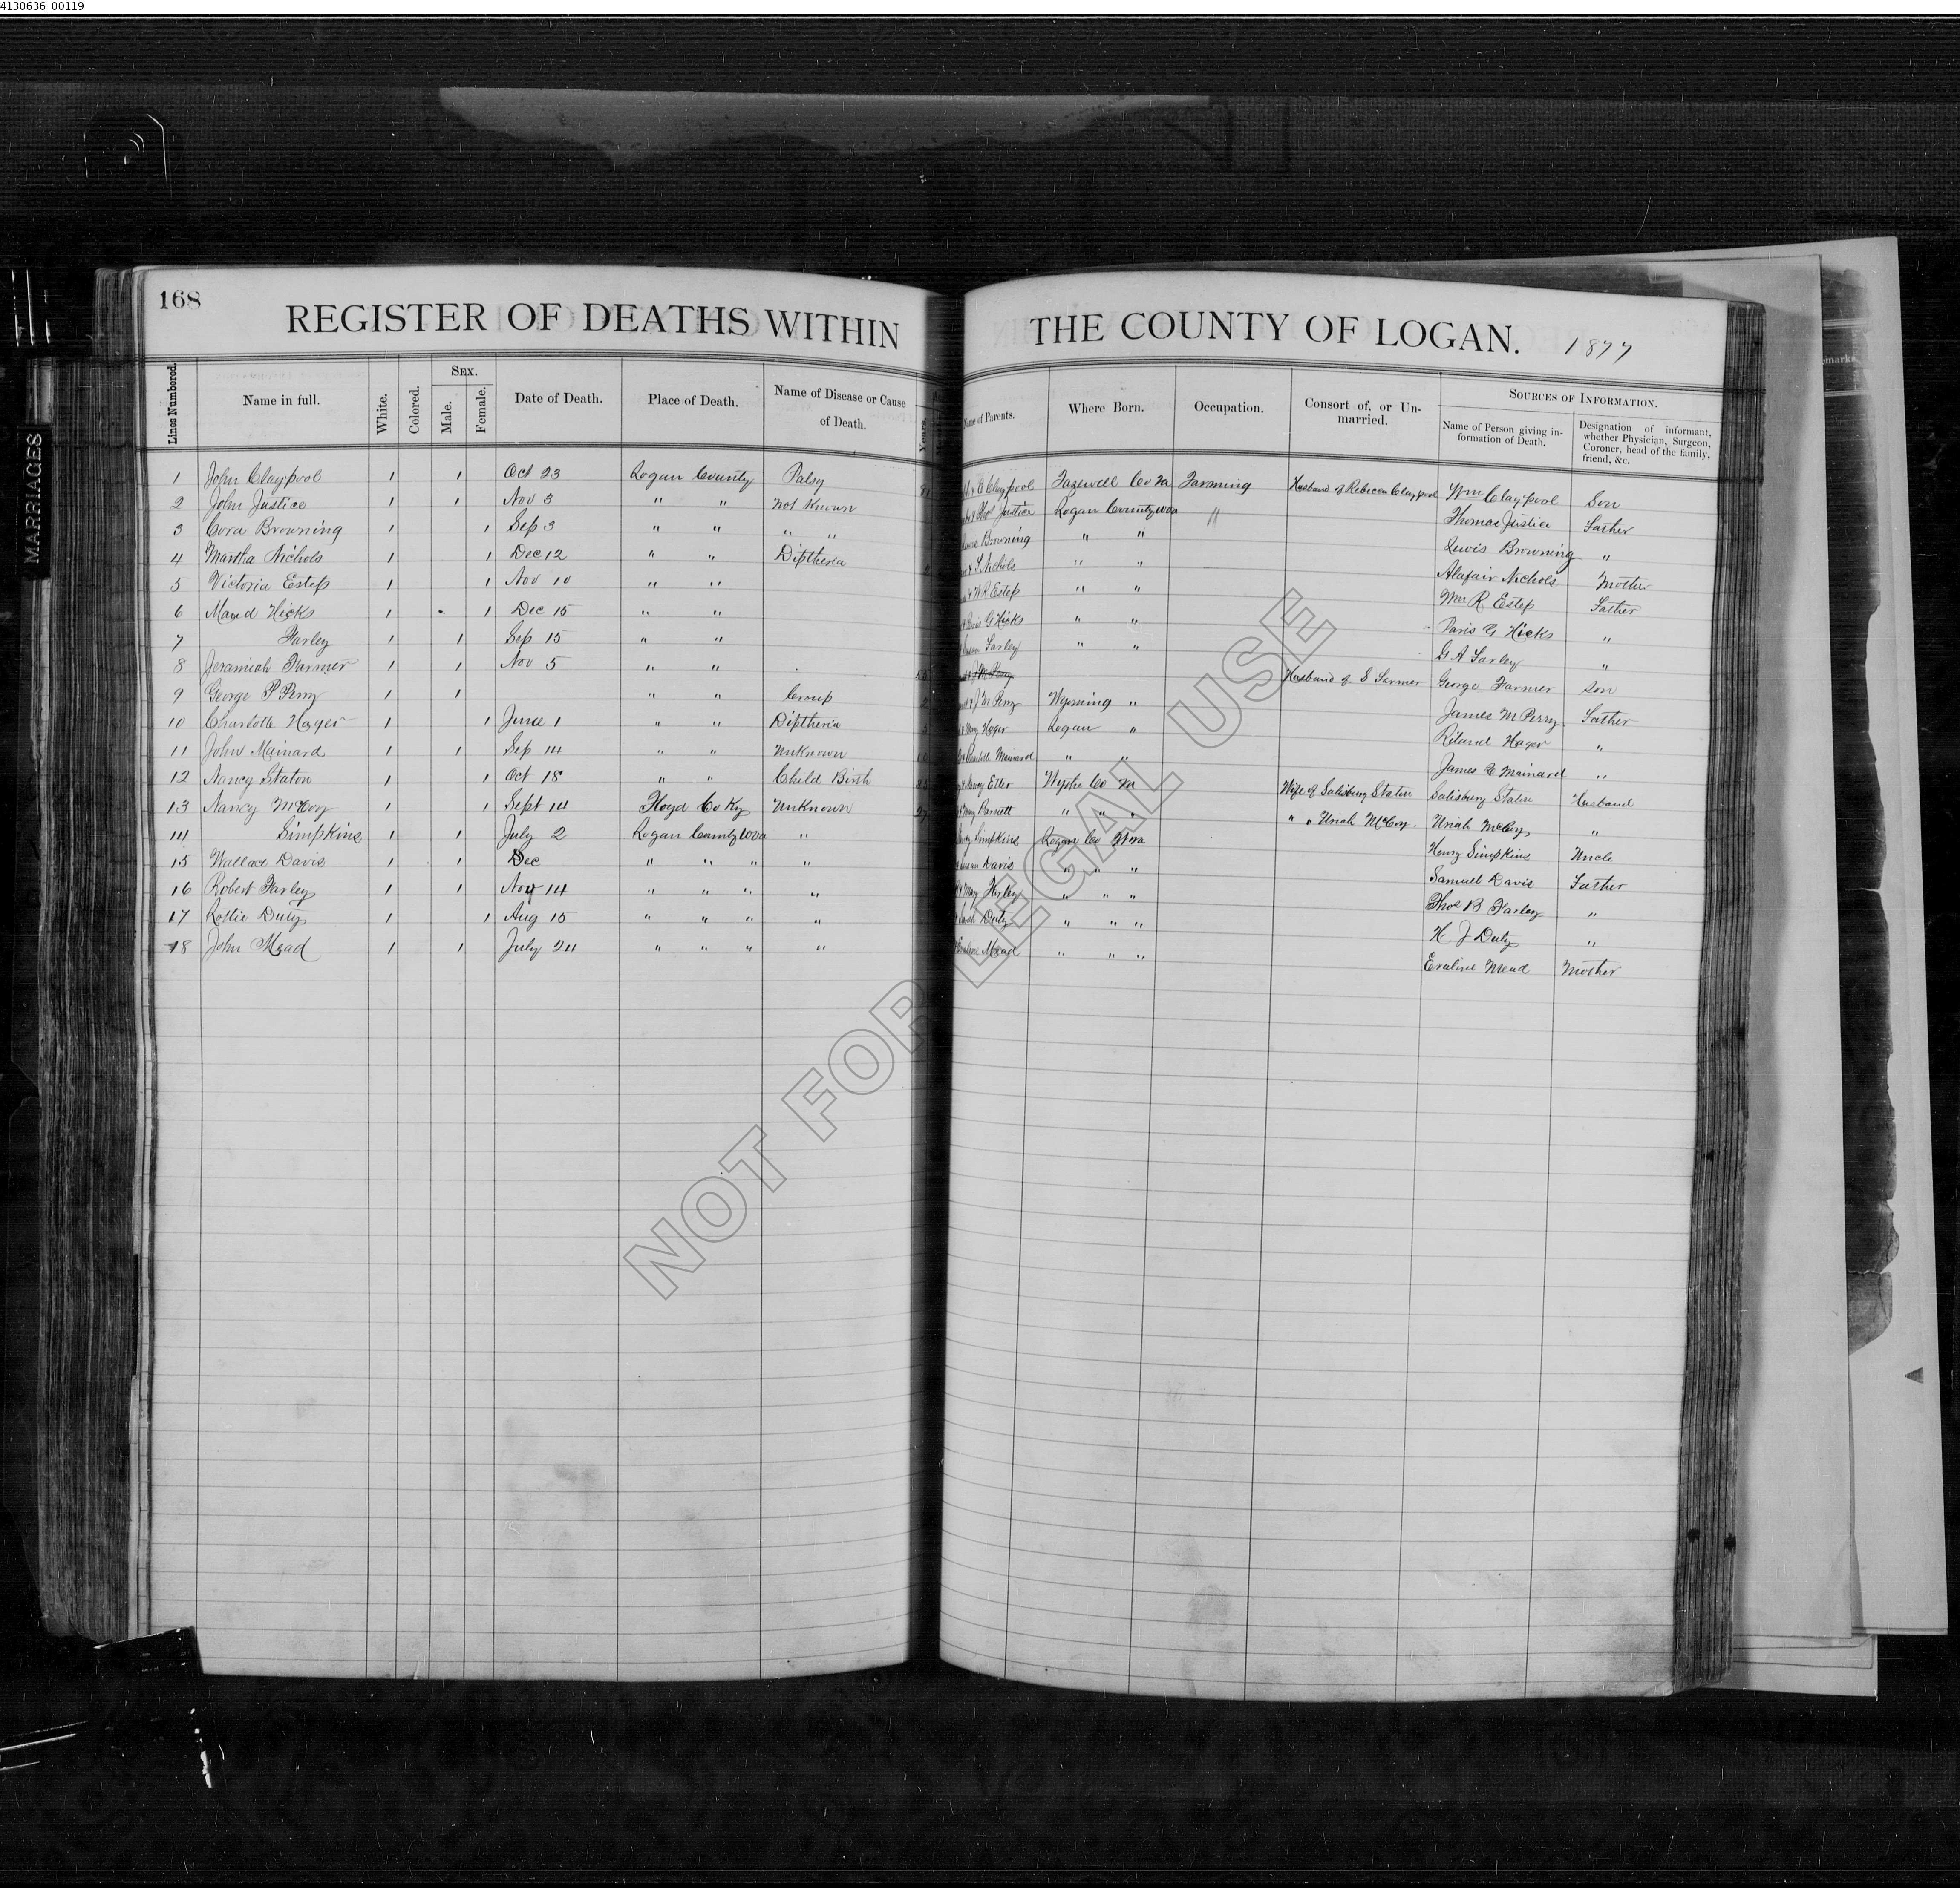 4130636_00119
MARRIAGES
168
REGISTER OF DEATHS WITHIN THE COUNTY OF LOGAN. 1877
Lines Numbered. Name in full. White. Colored. SEX. Male. Female. Date of Death. Place of Death. Name of Disease or Cause of Death. Years. Name of Parents. Where Born. Occupation. Consort of, or Unmarried. SOURCES OF INFORMATION. Name of Person giving information of Death. Designation of informant, whether Physician, Surgeon, Coroner, head of the family, friend, &c.
1 John Claypool 1 1 Oct 23 Logan County Palsy Claypool Tazewell Co Va Farming Husband of Rebecca Claypool Wm Claypool Son
2 John Justice 1 1 Nov 3 " " Not Known Justice Logan County WVa " Thomas Justice Father
3 Cora Browning 1 1 Sep 3 " " " " Browning " " Lewis Browning "
4 Martha Nichols 1 1 Dec 12 " " Diptheria Nichols " " Alafair Nichols Mother
5 Victoria Estep 1 1 Nov 10 " " W R Estep " " Wm R Estep Father
6 Maud Hicks 1 1 Dec 15 " " G Hicks " " Paris G Hicks "
7 Farley 1 1 Sep 15 " " Farley " " G A Farley "
8 Jeramiah Farmer 1 1 Nov 5 " " Husband of S Farmer George Farmer Son
9 George P Perry 1 1 " " Croup J M Perry Wyoming " James M Perry Father
10 Charlotte Hager 1 1 June 1 " " Diptheria Hager Logan " Riland Hager "
11 John Mainard 1 1 Sep 14 " " Unknown Mainard " " James E Mainard "
12 Nancy Staton 1 1 Oct 18 " " Child Birth Nancy Etter Wythe Co Va Wife of Salisbury Staton Salisbury Staton Husband
13 Nancy McCoy 1 1 Sept 14 Floyd Co Ky Unknown Parnett " " " " " Uriah McCoy Uriah McCoy "
14 Simpkins 1 1 July 2 Logan County WVa " Simpkins Logan Co WVa Henry Simpkins Uncle
15 Wallace Davis 1 1 Dec " " " " Davis " " " Samuel Davis Father
16 Robert Farley 1 1 Nov 14 " " " " Mary Farley " " " Thos B Farley "
17 Lottie Duty 1 1 Aug 15 " " " " Duty " " " H J Duty "
18 John Mead 1 1 July 24 " " " " Evaline Mead " " " Evaline Mead Mother
NOT FOR LEGAL USE